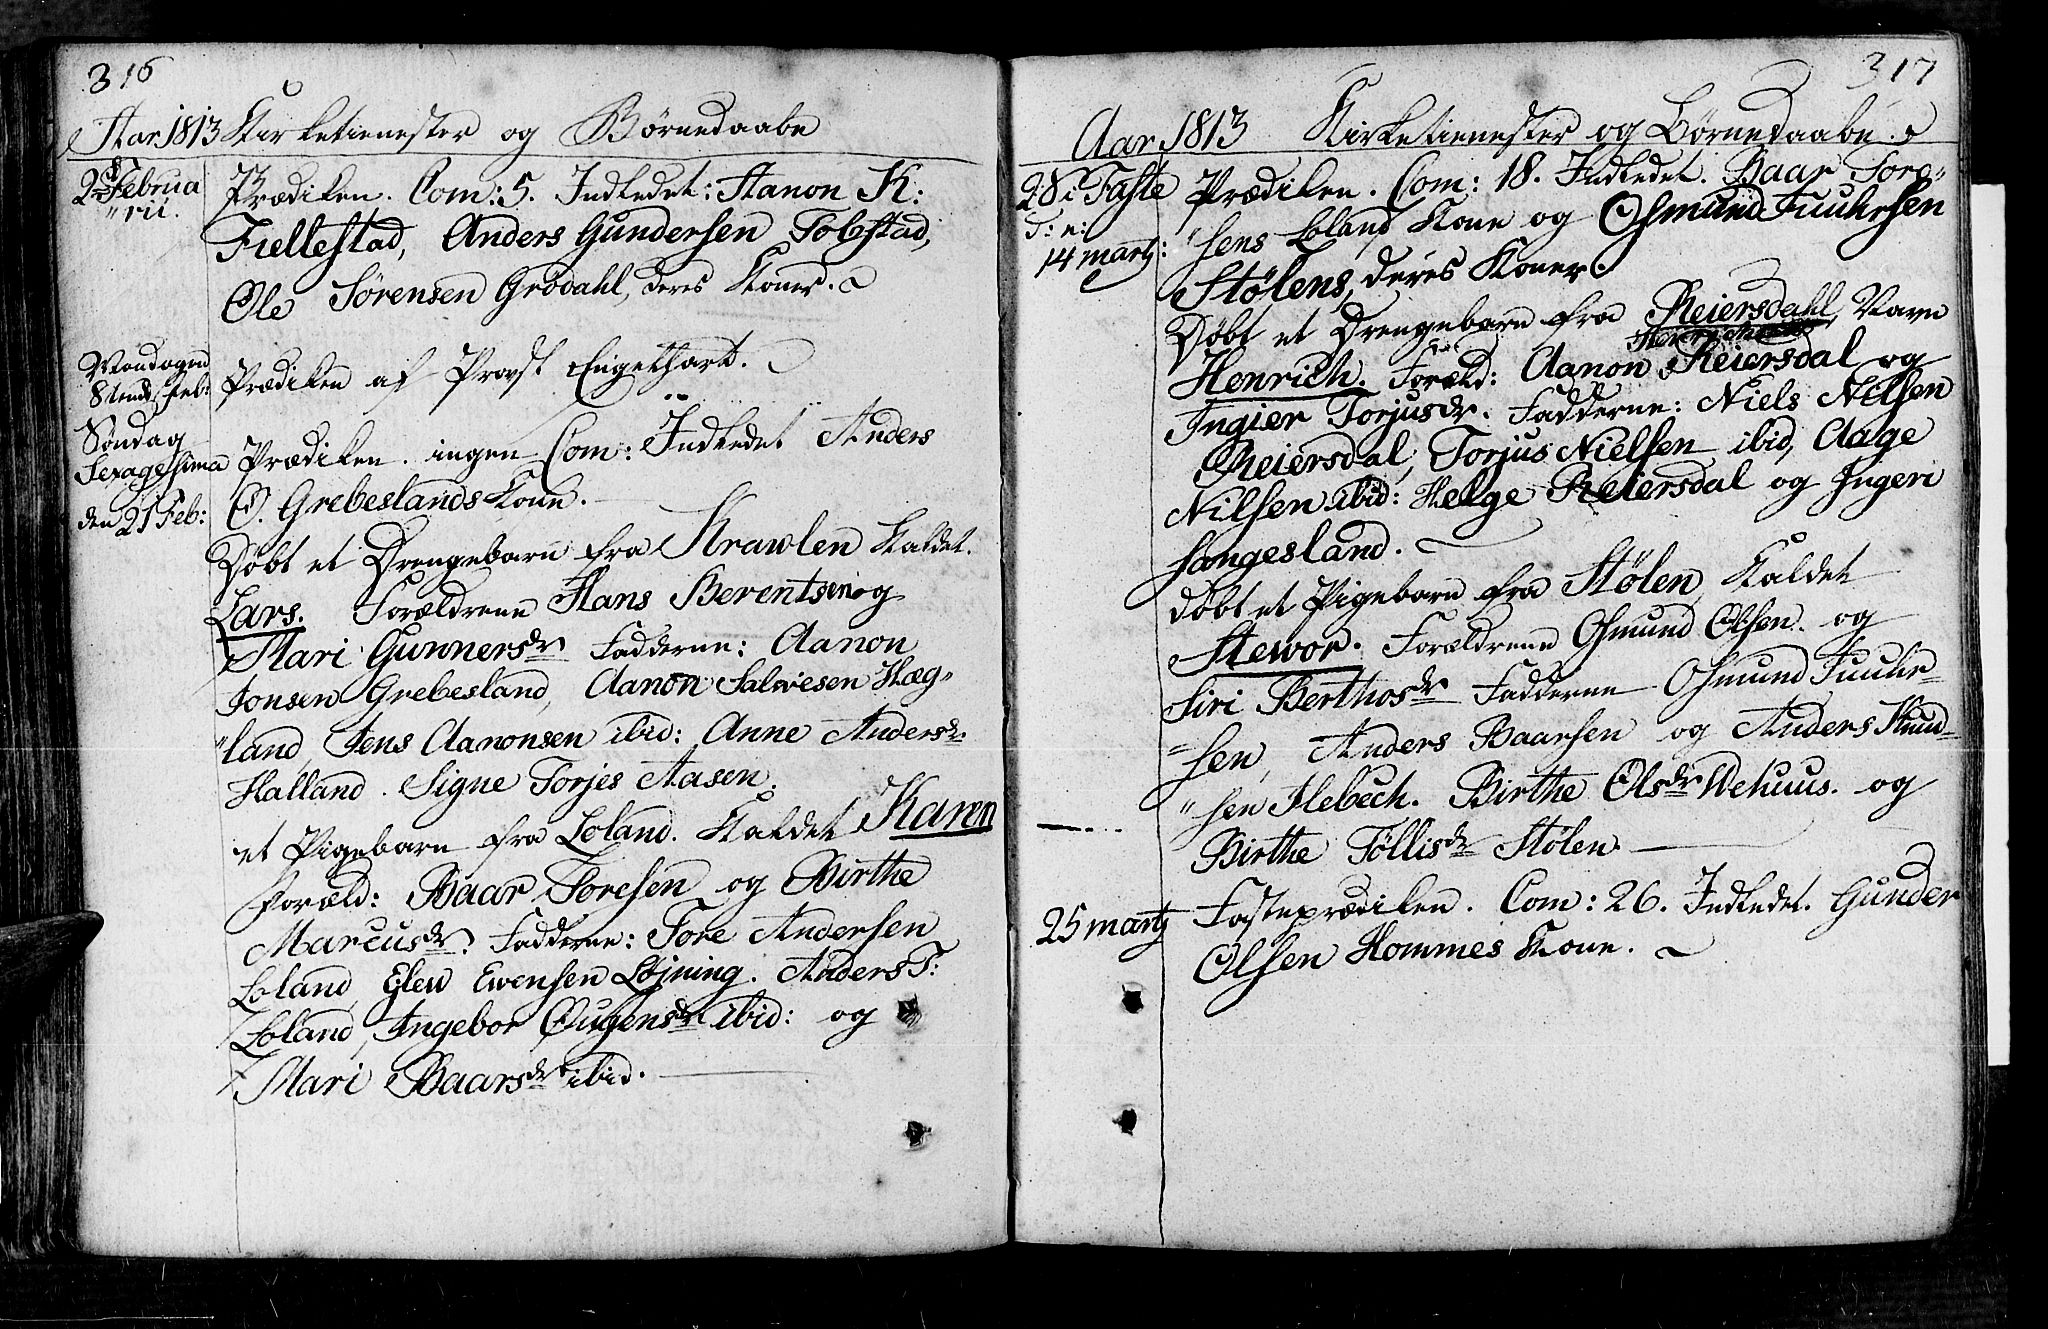 316
Aar 1813 Kirketienester og Børnedaabe
2d Februa
"rii.
Prædiken. Com: 5. Indledet: Aanon K:
Fiellestad, Anders Gundersen Tobstad,
Ole Sørensen Grødahl, deres Koner.
Mondagen
8tende Feb:
Prædiken af Provst Engelhart.
Søndag
Sexagesima
den 21 Feb:
Prædiken. ingen Com: Indledet Anders
O. Grebeslands Kone.
Døbt et Drengebarn fra Krawlen kaldet.
Lars. Forældrene Hans Berentsen og
Mari Gunnersdr Fadderne: Aanon
Jonsen Grebesland, Aanon Salvesen Hæg-
"land, Jens Aanonsen ibid: Anne Andersdr.
Halland. Signe Torjes Aasen.
et Pigebarn fra Loland. kaldet Karen
Foræld: Baar Toresen og Birthe
Marcusdr. Fadderne: Tore Andersen
Loland, Elev Evensen Løjning. Anders T:
Loland, Ingebor Ougensdr ibid: og
Mari Baarsdr ibid.
317
Aar 1813 Kirketienester og Børnedaabe.
2S i Faste
D: e:
14 martz:
Prædiken. Com: 18. Indledet. Baar Tore-
"sens Loland Kone og Osmund Tuuhrsen
Stølens, deres Koner.
Døbt et Drengebarn fra Reiersdahl, Navn
Henrich. Foræld: Aanon Reiersdal og
Ingier Torjusdr. Fadderne: Niels Nilsen
Reiersdal, Torjus Nielsen ibid, Aage
Nilsen ibid: Helge Reiersdal og Ingeri
Hangesland.
døbt et Pigebarn fra Stølen, kaldet
Stewor. Forældrene Osmund Olsen og
Siri Berthosdr Fadderne Osmund Tuuhr-
=sen, Anders Baarsen og Anders Knud-
"sen Ilebech. Birthe Olsdr Wehuus. og
Birthe Tøllisdr Stølen
25 martz
Fasteprædiken. Com: 26. Indledet. Gunder
Olsen Hommes Kone.